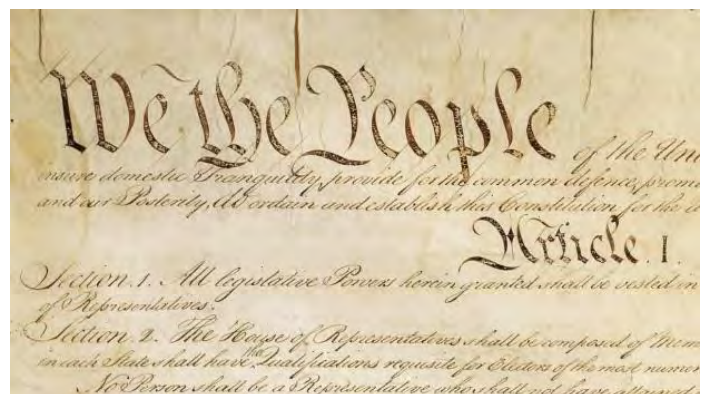 We the People of the Uni
insure domestic Tranquility, provide for the common defence, promo
and our Posterity, do ordain and establish this Constitution for the
Article. I.
Section. 1. All legislative Powers herein granted shall be vested in
of Representatives.
Section. 2. The House of Representatives shall be composed of Mem
in each State shall have the Qualifications requisite for Electors of the most numer
No Person shall be a Representative who shall not have attained